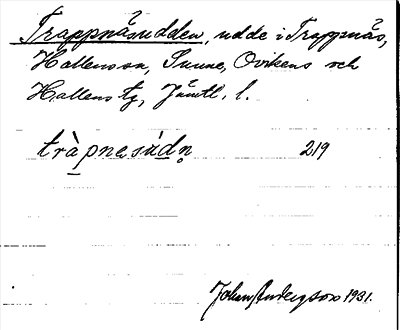 Trappnäsudden, udde i Trappnäs,
Hallens sn, Sunne, Ovikens och
Hallens tg, Jämtl. l.
tràpnesúdn̥ 219
Johan Andersson 1931.